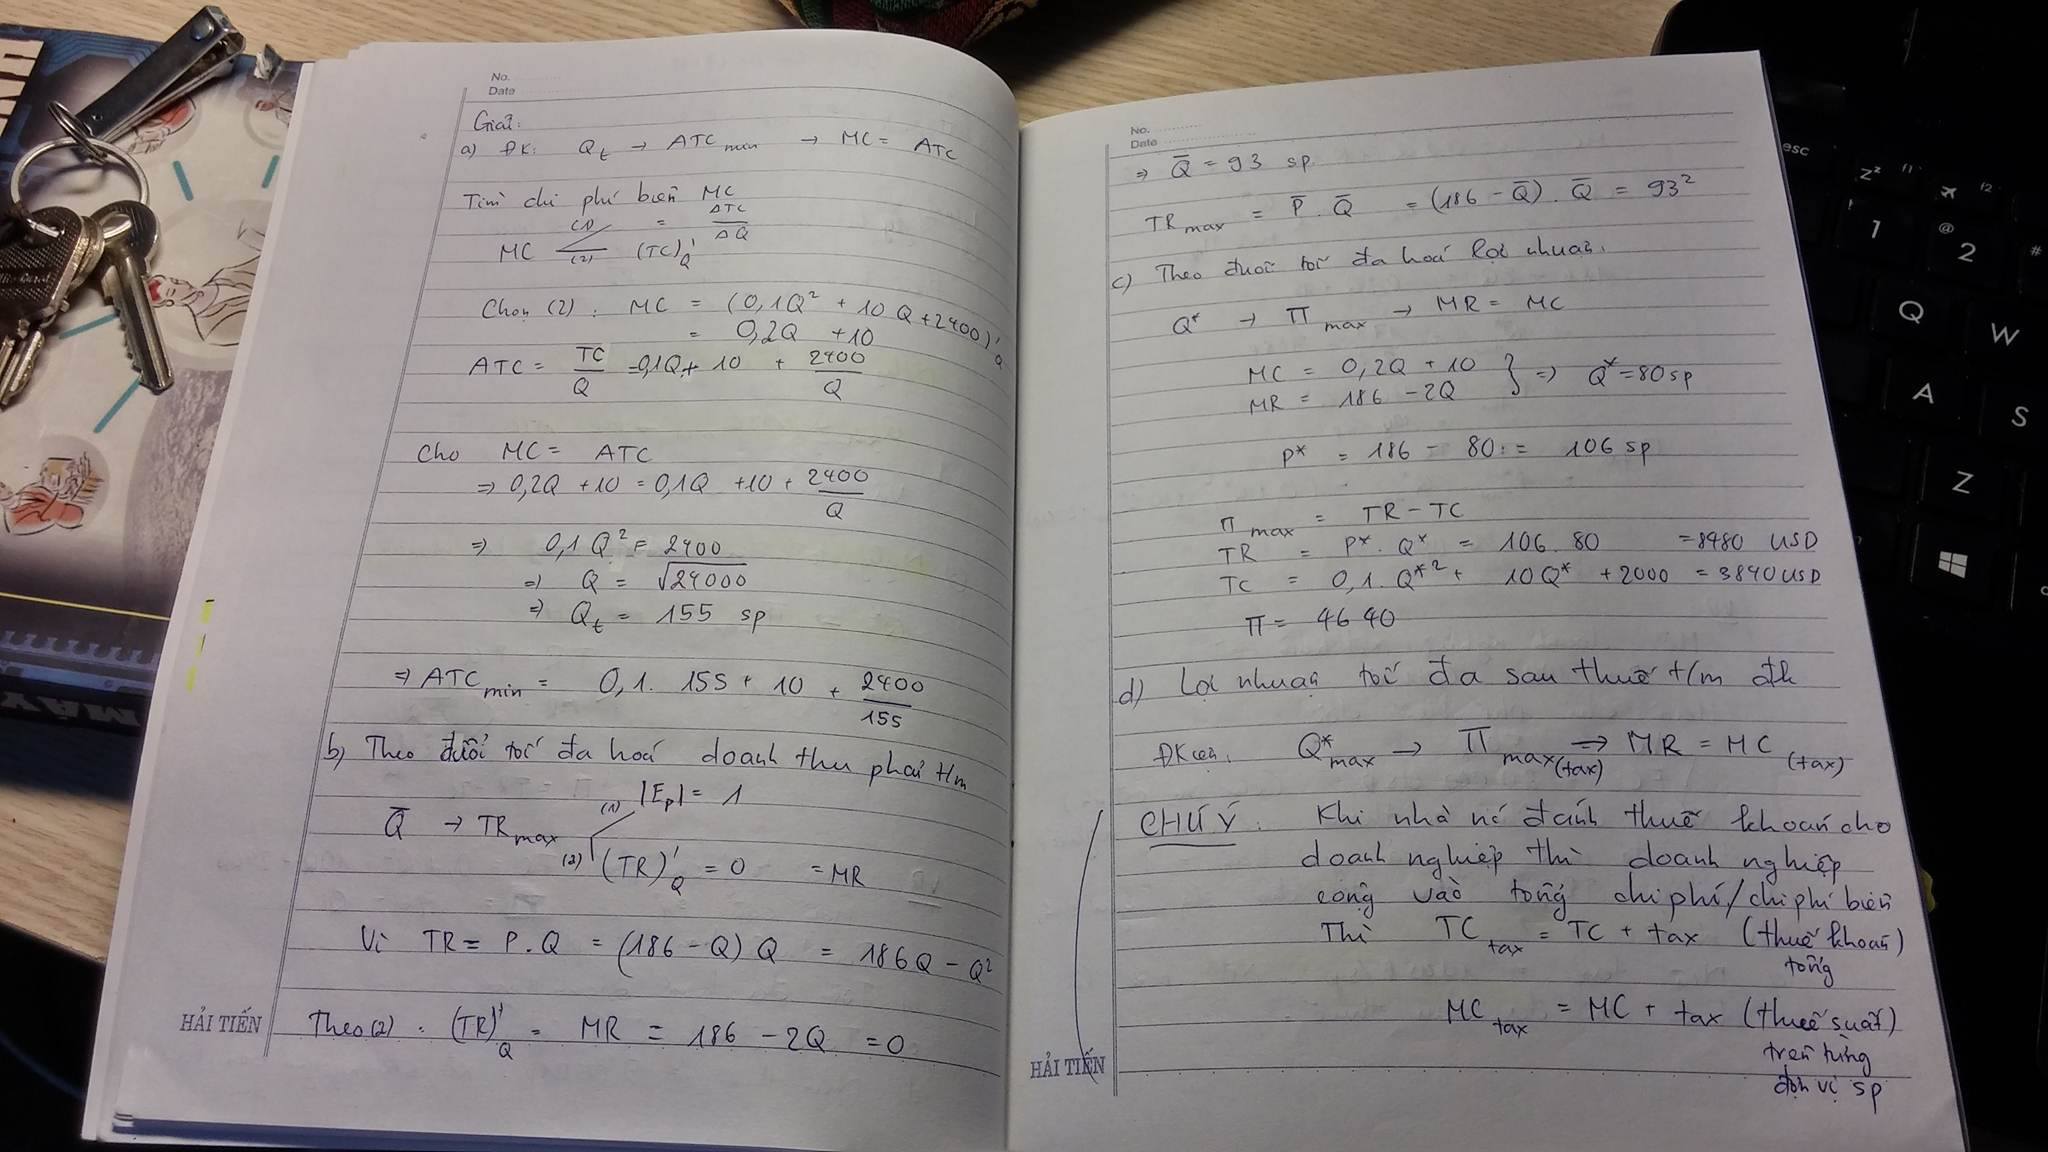 No.
Date
Giải:
a) ĐK: Qt → ATC min → MC = ATC
Tìm chi phí biên MC
MC (1) = ΔTC/ΔQ
(2) (TC)'Q
Chọn (2): MC = (0,1Q² + 10Q + 2400)'Q
= 0,2Q + 10
ATC = TC/Q = 0,1Q + 10 + 2400/Q
Cho MC = ATC
⇒ 0,2Q + 10 = 0,1Q + 10 + 2400/Q
⇒ 0,1Q² = 2400
⇒ Q = √24000
⇒ Qt = 155 sp
⇒ ATC min = 0,1. 155 + 10 + 2400/155
b) Theo đuổi tối đa hoá doanh thu phải t/m
Q̄ → TR max (1) |Ep| = 1
(2) (TR)'Q = 0 = MR
Vì TR = P.Q = (186 - Q) Q = 186Q - Q²
Theo (2): (TR)'Q = MR = 186 - 2Q = 0
HẢI TIẾN
No.
Date
⇒ Q̄ = 93 sp
TR max = P̄ . Q̄ = (186 - Q̄) . Q̄ = 93²
c) Theo đuổi tối đa hoá lợi nhuận.
Q* → π max → MR = MC
MC = 0,2Q + 10
MR = 186 - 2Q } ⇒ Q* = 80 sp
P* = 186 - 80 = 106 sp
π max = TR - TC
TR = P* . Q* = 106. 80 = 8480 USD
TC = 0,1. Q*² + 10Q* + 2000 = 3840 USD
π = 4640
d) Lợi nhuận tối đa sau thuế t/m đk
Q* max → π max (tax) ⇒ MR = MC (tax)
CHÚ Ý: Khi nhà nc đánh thuế khoán cho
doanh nghiệp thì doanh nghiệp
cộng vào tổng chi phí/chi phí biên
Thì TC tax = TC + tax (thuế khoán)
tổng
MC tax = MC + tax (thuế suất)
trên từng
đơn vị sp
HẢI TIẾN
esc
f1
f2
1
@
2
#
Q
W
A
S
Z
MÁY